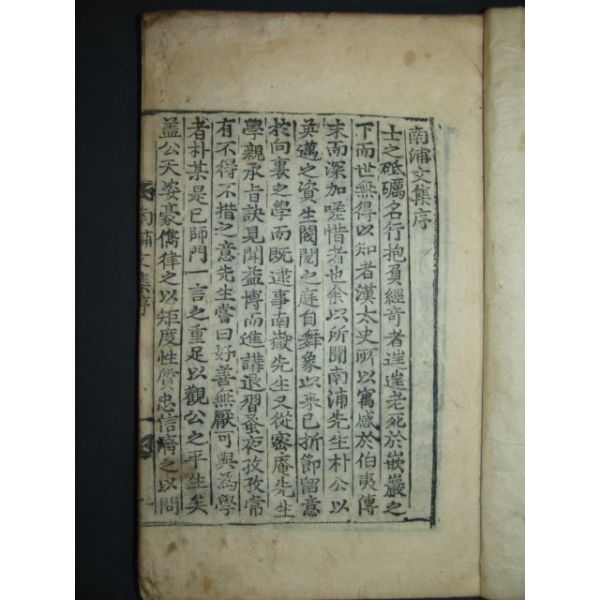 南浦文集序
士之砥礪名行抱負經奇者逬逬老死於嵌巖之
下而世無得以知者漢太史所以寓感於伯夷傳
末而深加嗟惜者也余以所聞南浦先生朴公以
英邁之資生閥閱之庭自舞象以來已折節留意
於向裏之學而旣逮事南嶽先生又從密庵先生
學親承旨訣見聞益博而進講退習蚤夜孜孜常
有不得不措之意先生嘗曰好善無厭可與爲學
者朴某是已師門一言之重足以觀公之平生矣
盖公天姿豪儁律之以矩度性質忠信濟之以問
南浦文集序
一